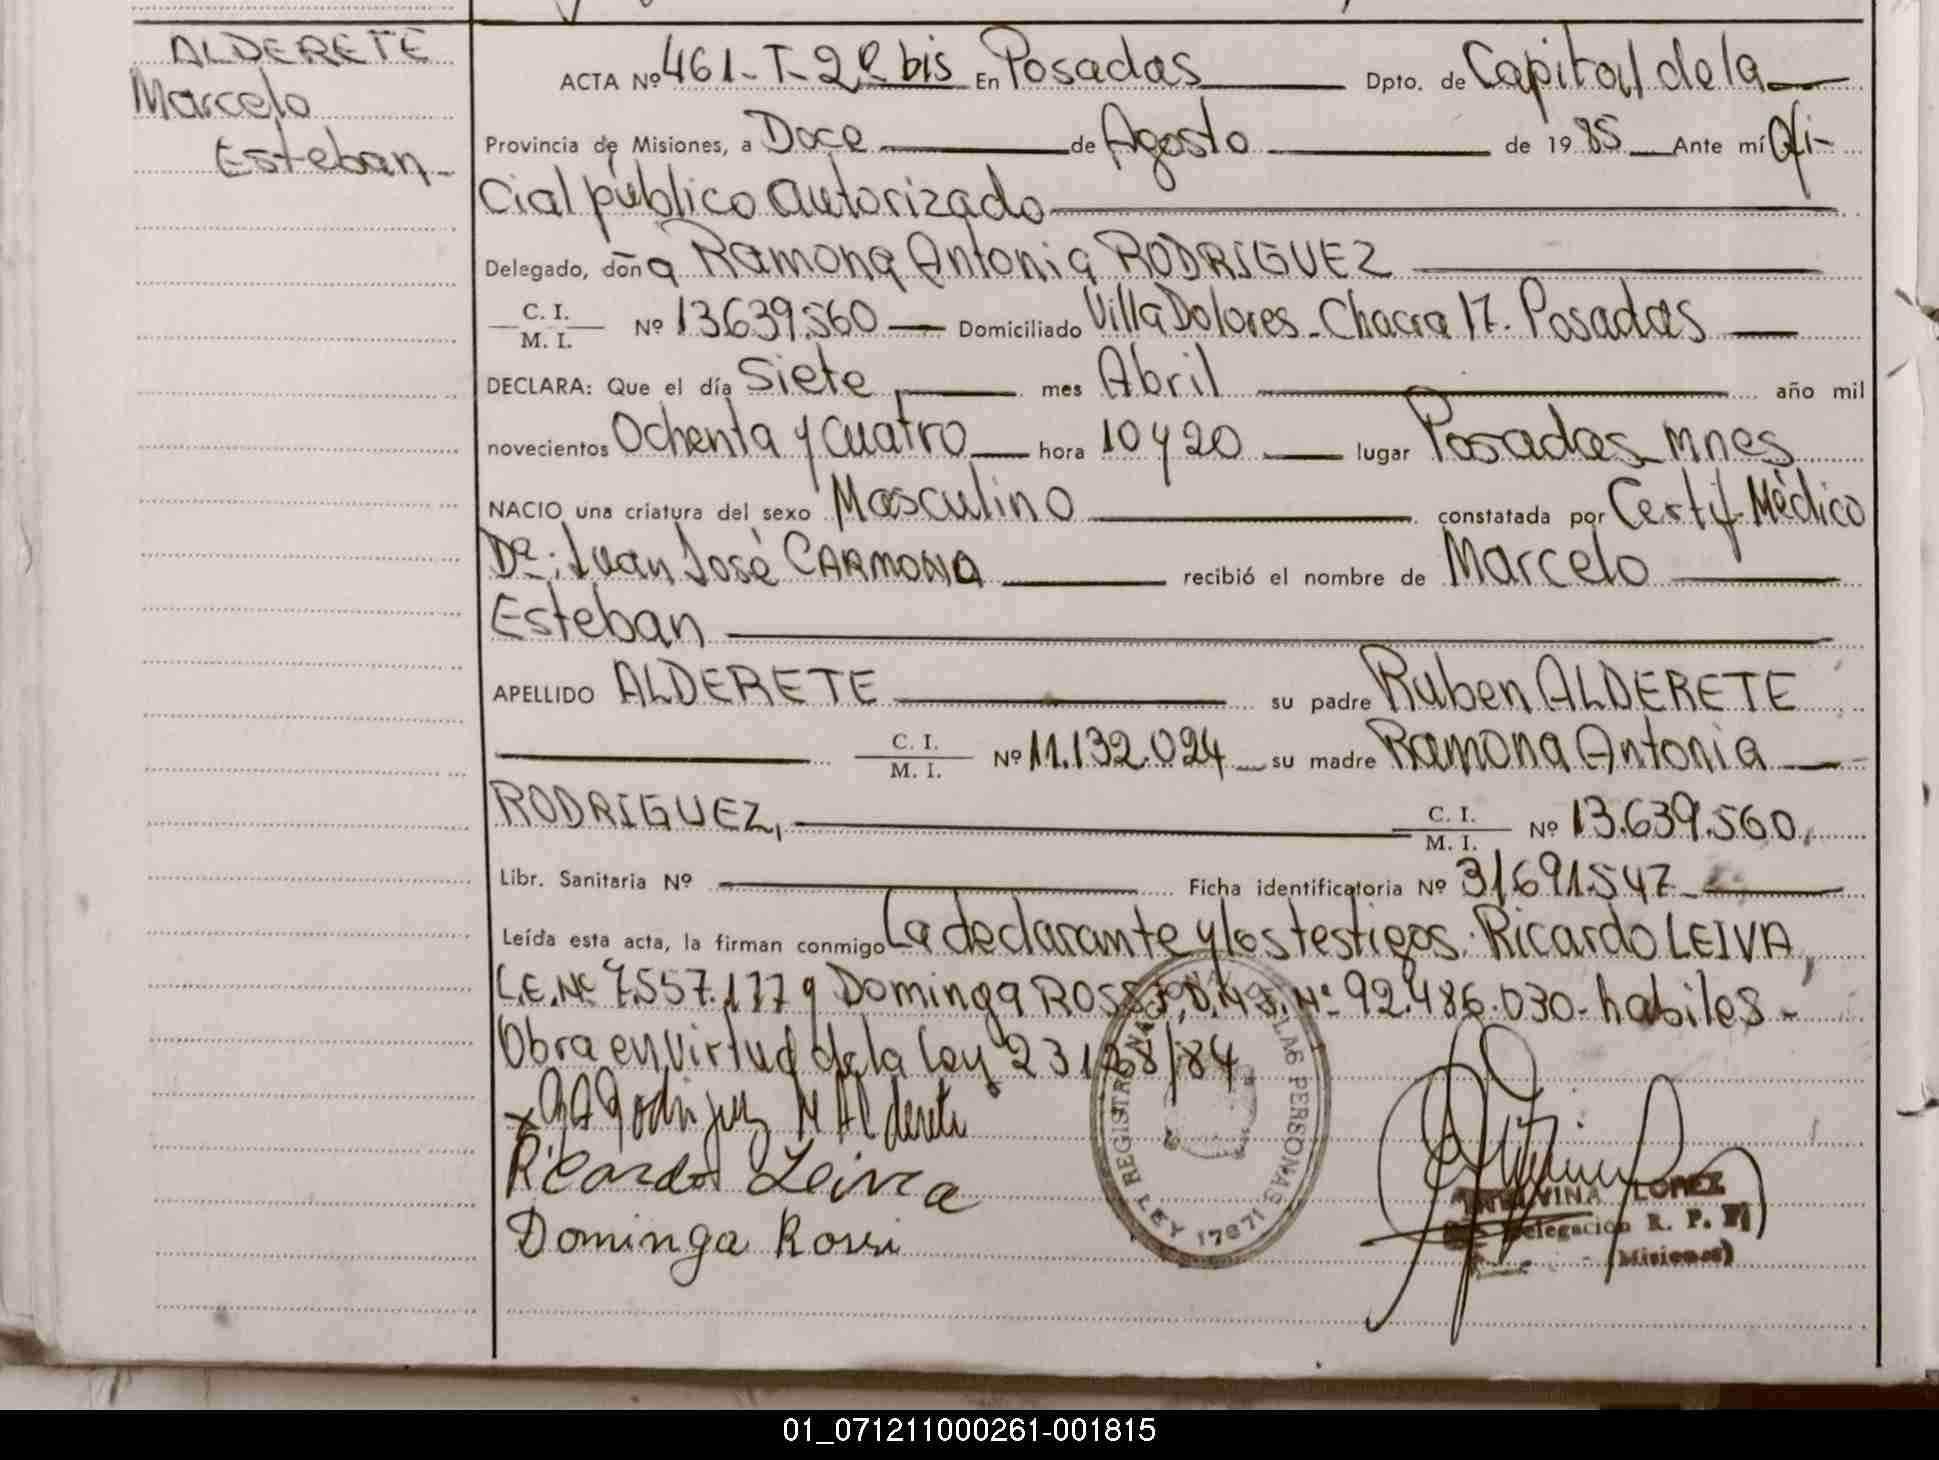 ALDERETE
Marcelo
Esteban-
ACTA Nº 461-T-2º bis En Posadas Dpto. de Capital de la
Provincia de Misiones, a Doce de Agosto de 1985 Ante mí Ofi-
cial público autorizado
Delegado, doña Ramona Antonia RODRIGUEZ
C. I.
M. I. Nº 13.639.560 Domiciliado Villa Dolores-Chacra 17. Posadas
DECLARA: Que el día Siete mes Abril año mil
novecientos Ochenta y Cuatro hora 10 y 20 lugar Posadas-Mnes
NACIO una criatura del sexo Masculino constatada por Certif. Mèdico
Dr: Juan Josè CARMONA recibió el nombre de Marcelo
Esteban
APELLIDO ALDERETE su padre Ruben ALDERETE
C. I.
M. I. Nº 11.132.024 su madre Ramona Antonia
RODRIGUEZ, C. I.
M. I. Nº 13.639.560,
Libr. Sanitaria Nº Ficha identificatoria Nº 31691.547
Leída esta acta, la firman conmigo La declarante y los testigos: Ricardo LEIVA,
L.E. Nº 7.557.177 y Dominga ROSSI, Nº 92.486.030- habiles-
Obra en virtud de la ley 23128/84
x Rodriguez Alderete
Ricardo Leiva
Dominga Rossi
REGISTRO NACIONAL DE LAS PERSONAS
LEY 17671
LOPEZ
Delegación R. P.
(Misiones)
01_071211000261-001815